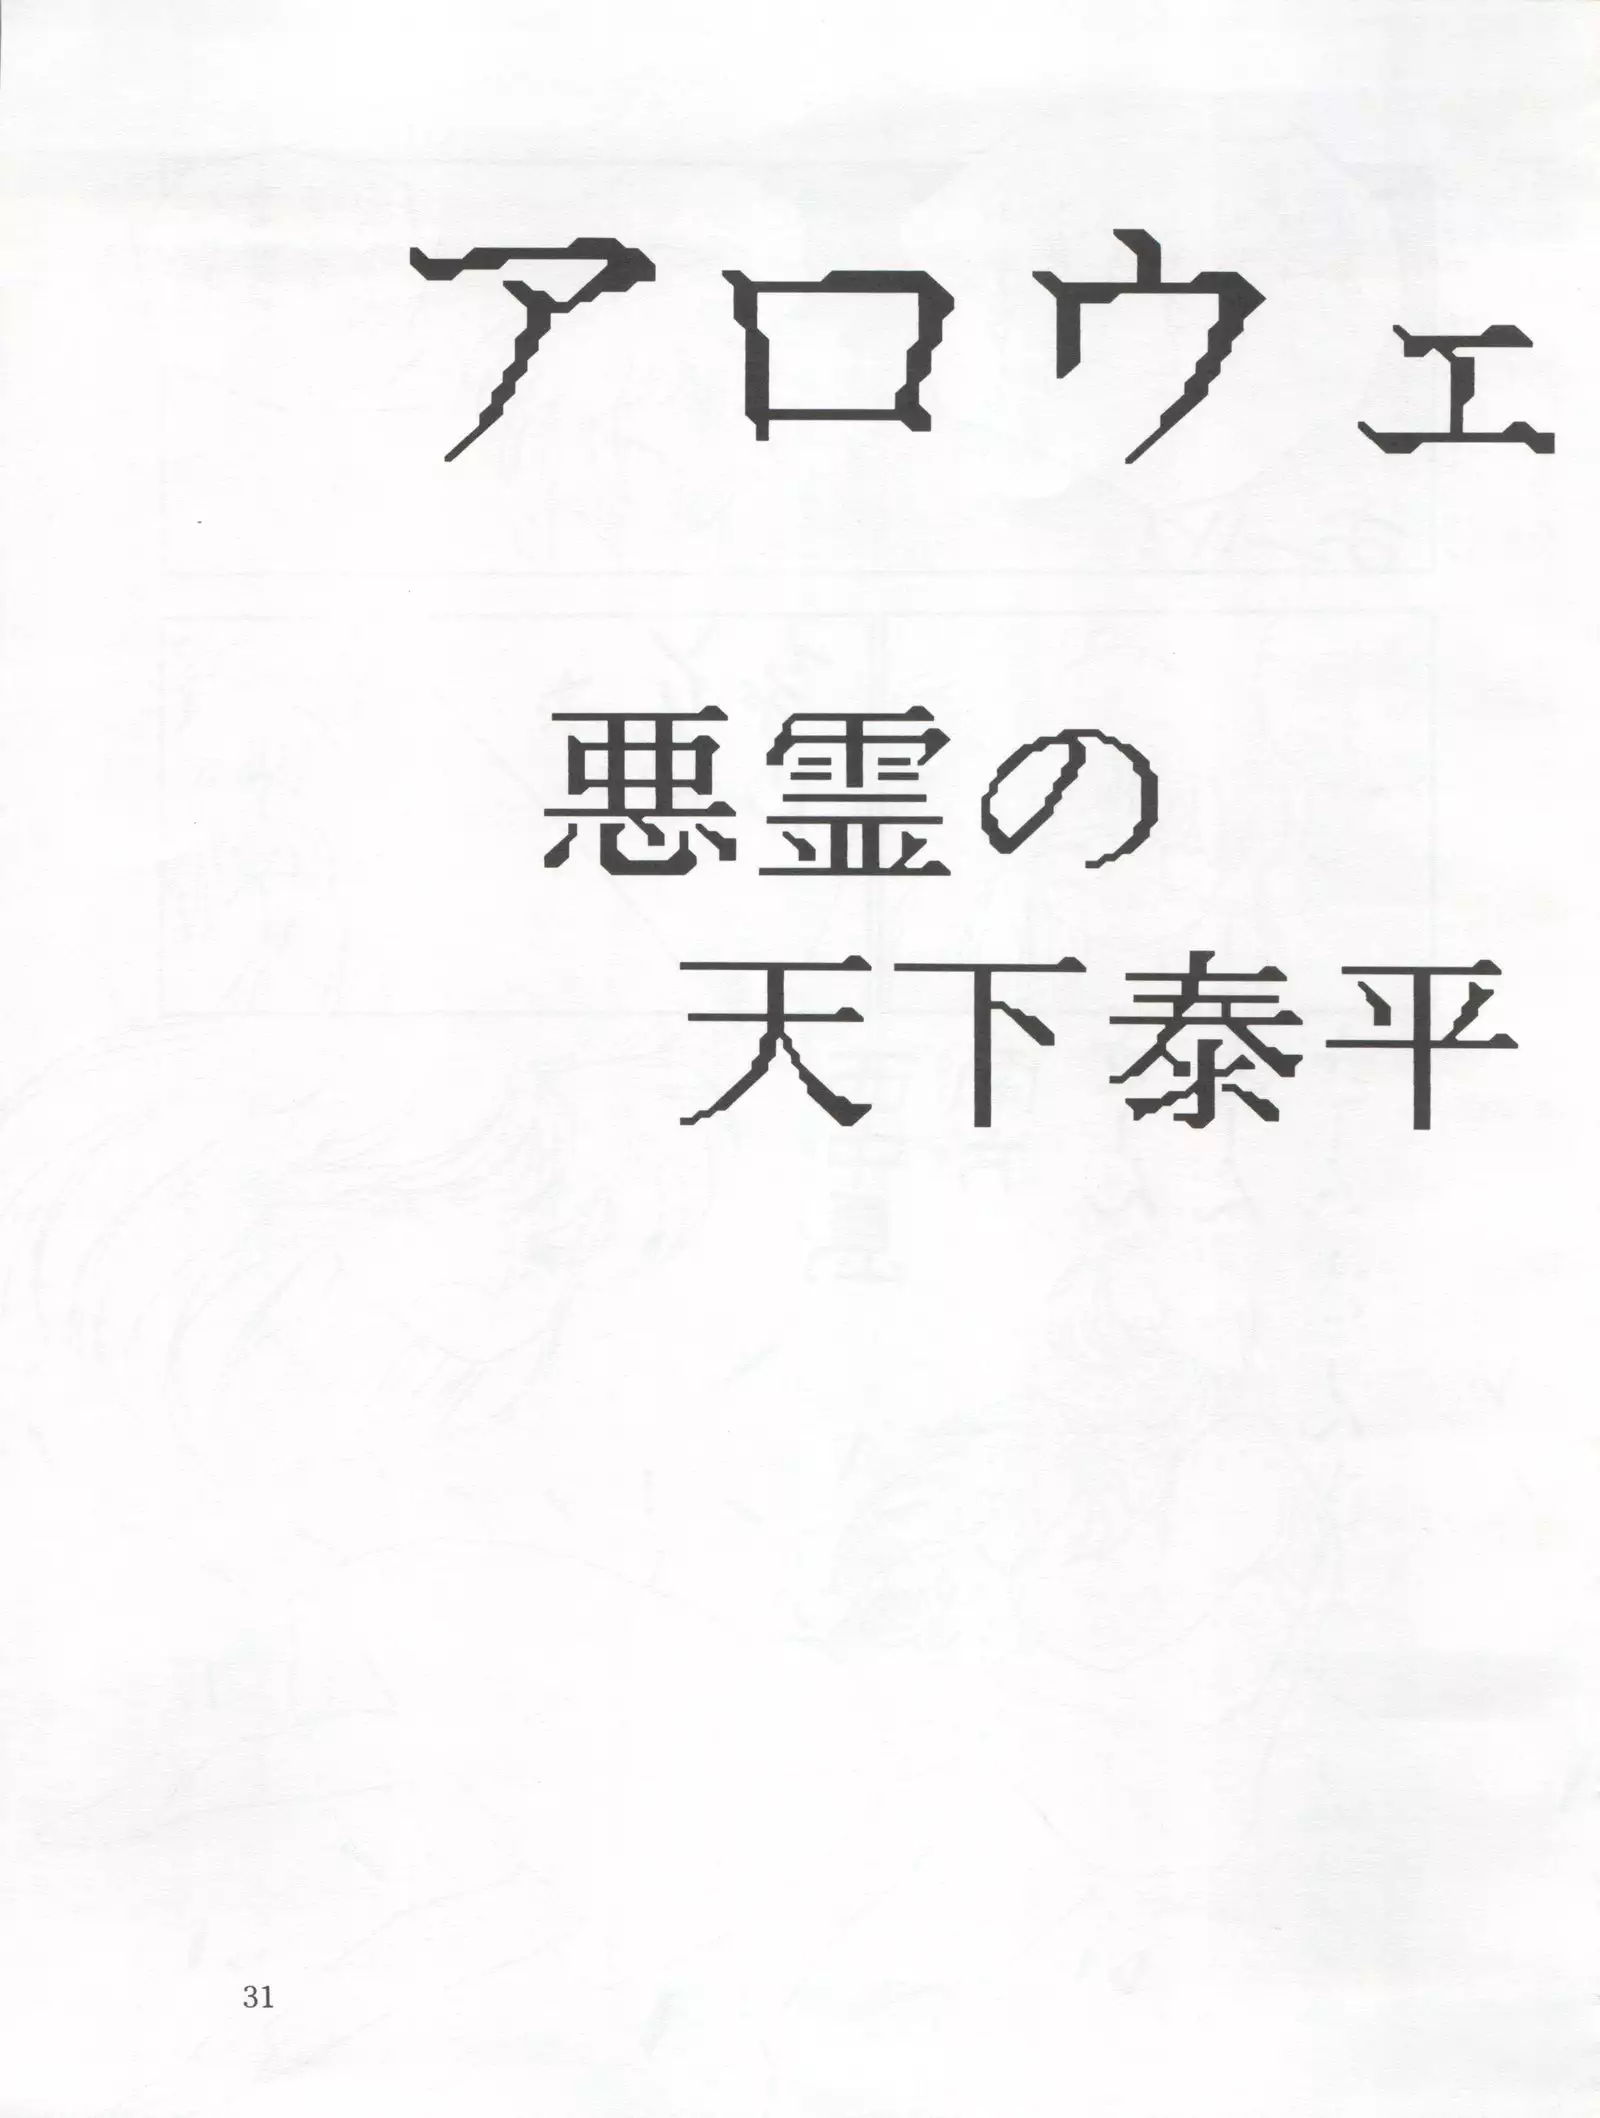 アロウェ
悪霊の
天下泰平
31